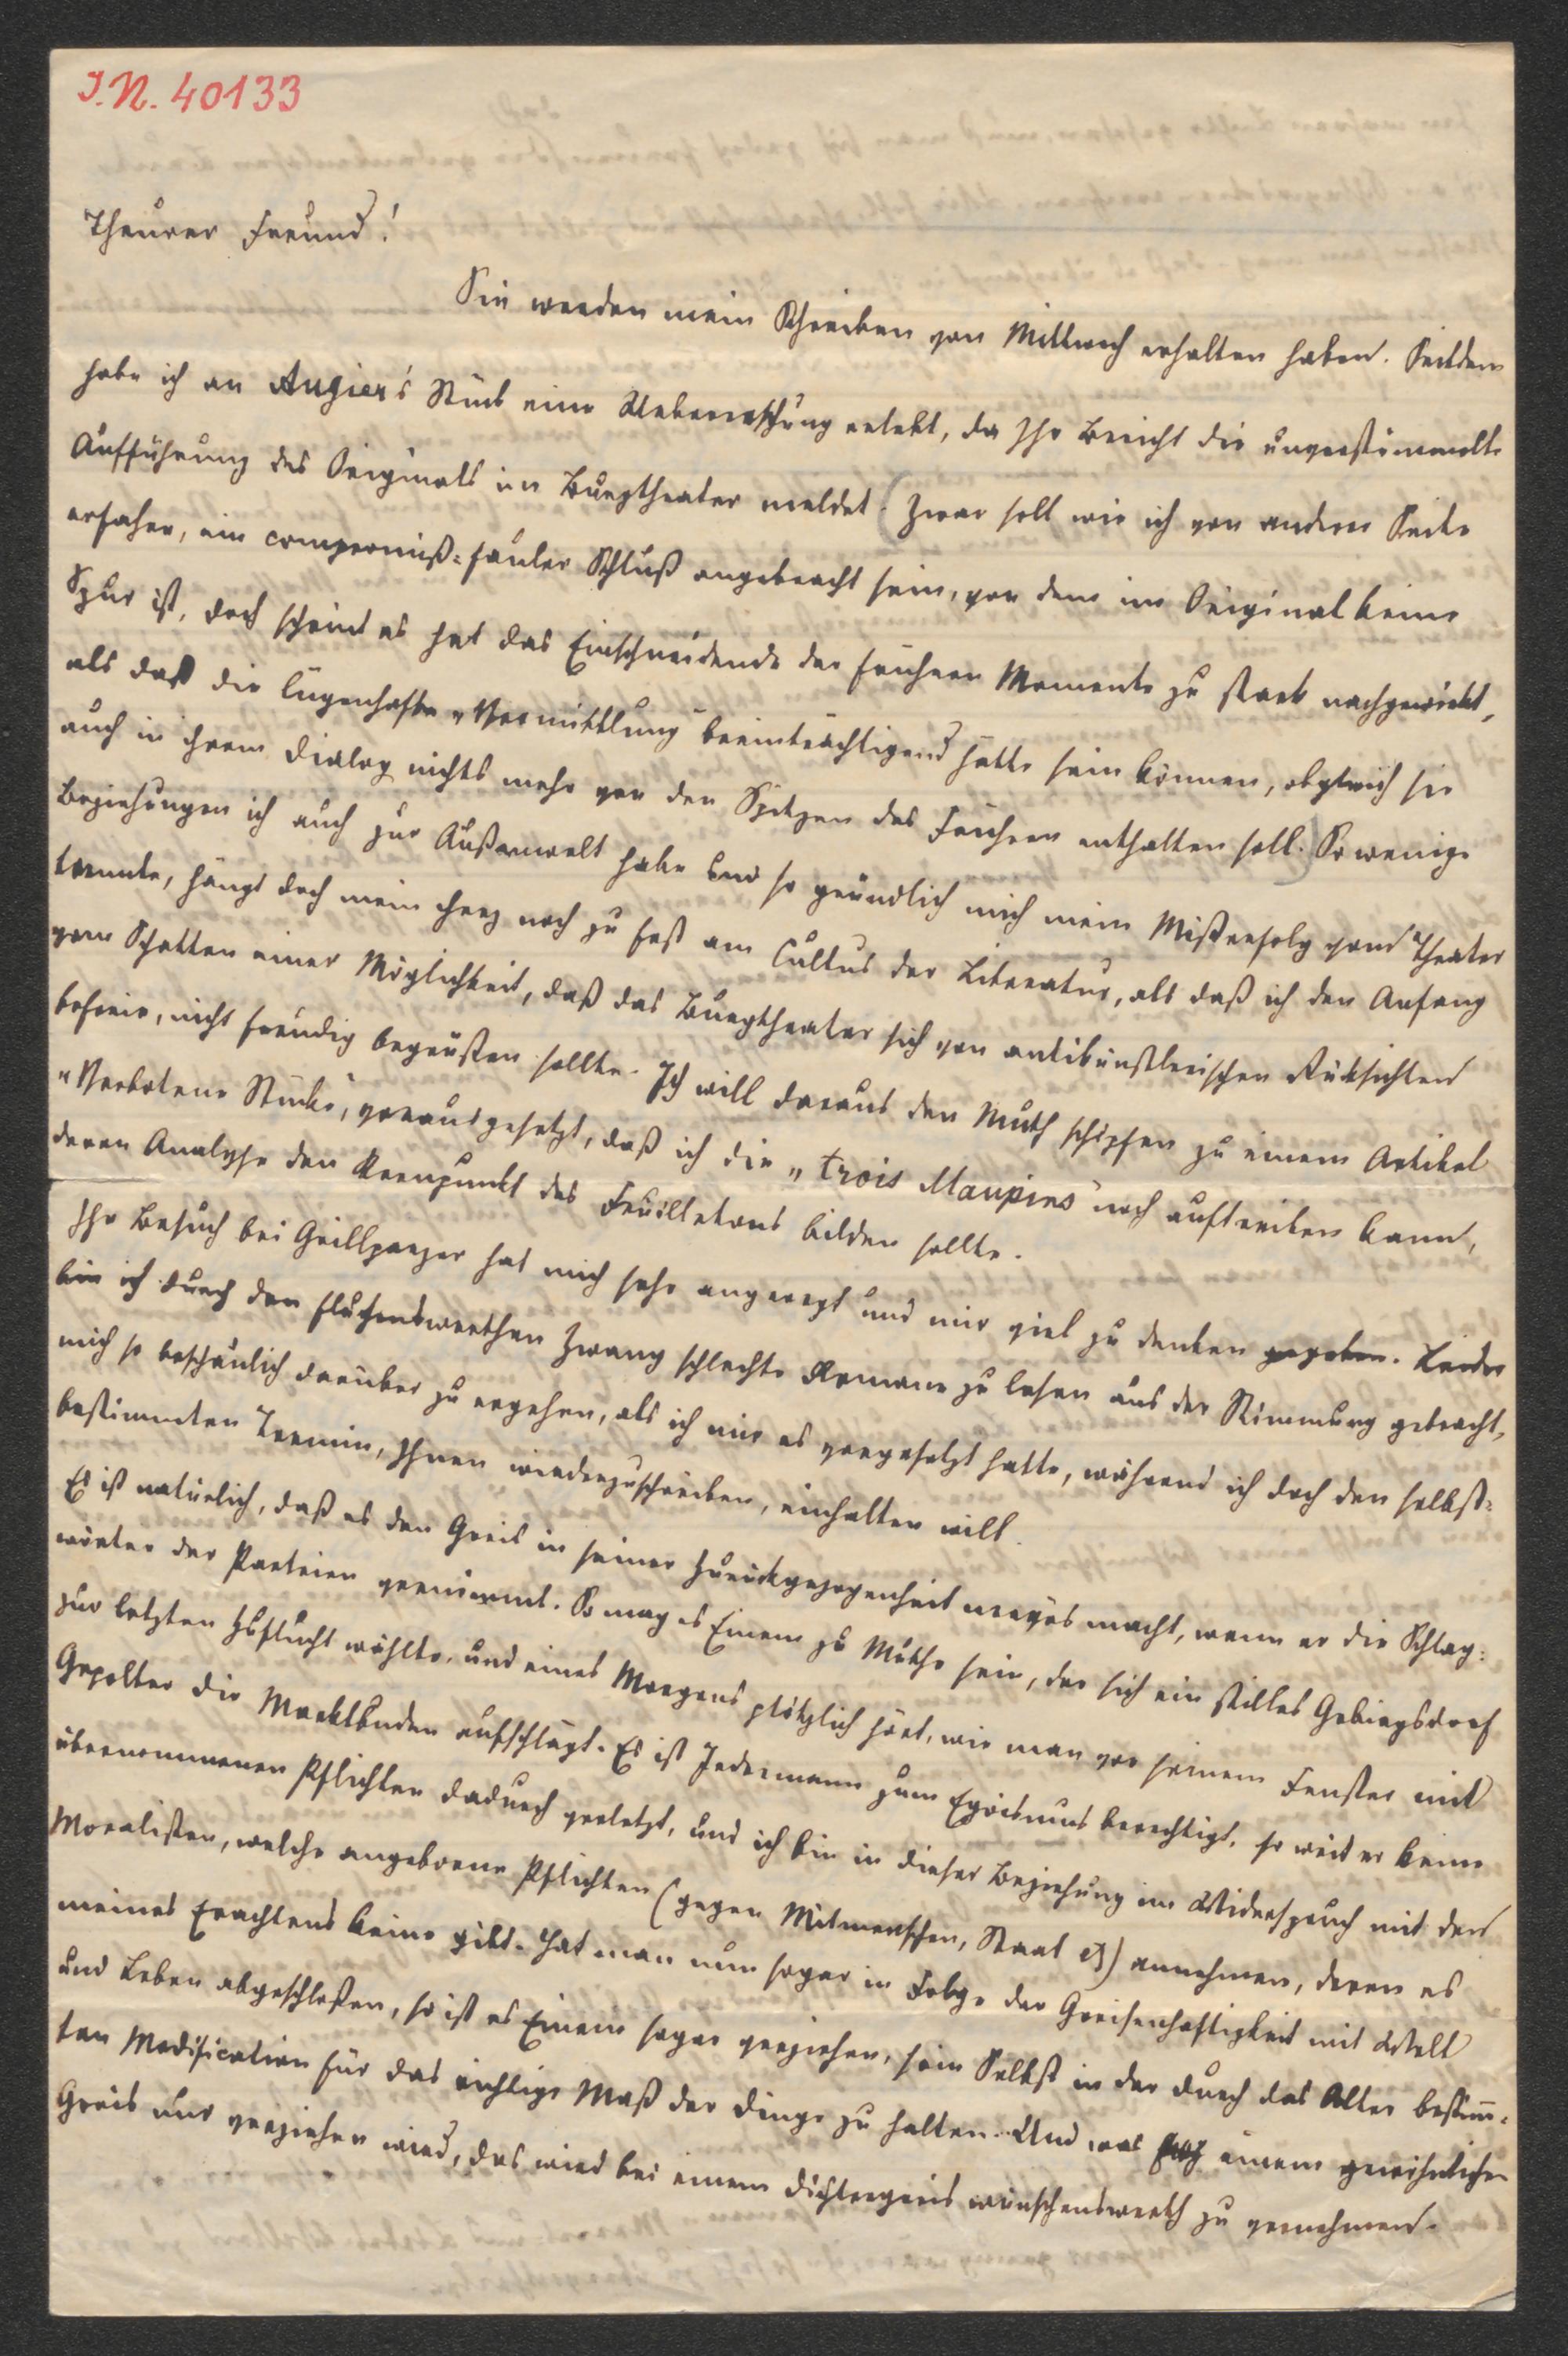 I.N. 40133
Theurer Freund!
Sie werden mein Schreiben von Mittwoch erhalten haben. Seitdem
habe ich an Augier's Stück eine Ueberraschung erlebt, da Ihr Bericht die unverstümmelte
Aufführung des Originals im Burgtheater meldet. (Zwar soll wie ich von anderer Seite
erfahre, ein compromiß-fauler Schluß angebracht sein, von dem im Original keine
Spur ist, doch scheint es hat das Einschneidende der frühern Momente zu stark nachgewirkt,
als daß die lügenhafte „Vermittlung" beeinträchtigend hätte sein können, obgleich sie
auch in ihrem Dialog nichts mehr von den Spitzen des Frühern enthalten soll.) So wenige
Beziehungen ich auch zur Außenwelt habe und so gründlich mich mein Mißerfolg vom Theater
trennte, hängt doch mein Herz noch zu fest am Cultus der Literatur, als daß ich den Anfang
vom Schatten einer Möglichkeit, daß das Burgtheater sich von antikünstlerischen Rüksichten
befreie, nicht freudig begrüßen sollte. Ich will daraus den Muth schöpfen zu einem Artikel
„Verbotene Stücke", vorausgesetzt, daß ich die „trois Maupins" noch auftreiben kann,
deren Analyse den Kernpunkt des Feuilletons bilden sollte.
Ihr Besuch bei Grillparzer hat mich sehr angeregt und mir viel zu denken gegeben. Leider
bin ich durch den fluchenswerthen Zwang schlechte Romane zu lesen aus der Stimmung gebracht,
mich so beschaulich darüber zu ergehen, als ich mir es vorgesetzt hatte, während ich doch den selbst-
bestimmten Termin, Ihnen wiederzuschreiben, einhalten will.
Es ist natürlich, daß es den Greis in seiner Zurückgezogenheit nervös macht, wenn er die Schlag-
wörter der Parteien vernimmt. So mag es Einem zu Muthe sein, der sich ein stilles Gebirgsdorf
zur letzten Zuflucht wählte, und eines Morgens plötzlich hört, wie man vor seinem Fenster mit
Gepolter die Marktbuden aufschlägt. Es ist Jedermann zum Egoismus berechtigt, so weit er keine
übernommenen Pflichten dadurch verletzt, und ich bin in dieser Beziehung im Widerspruch mit den
Moralisten, welche angeborene Pflichten (gegen Mitmenschen, Staat etc) annehmen, deren es
meines Erachtens keine gibt. Hat man nun sogar in Folge der Greisenhaftigkeit mit Welt
und Leben abgeschloßen, so ist es Einem sogar verziehen, sein Selbst in der durch das Alter bestimm-
ten Modification für das richtige Maß der Dinge zu halten. Und was einem gewöhnlichen
Greis nur verziehen wird, das wird bei einem Dichtergreis wünschenswerth zu vernehmen.